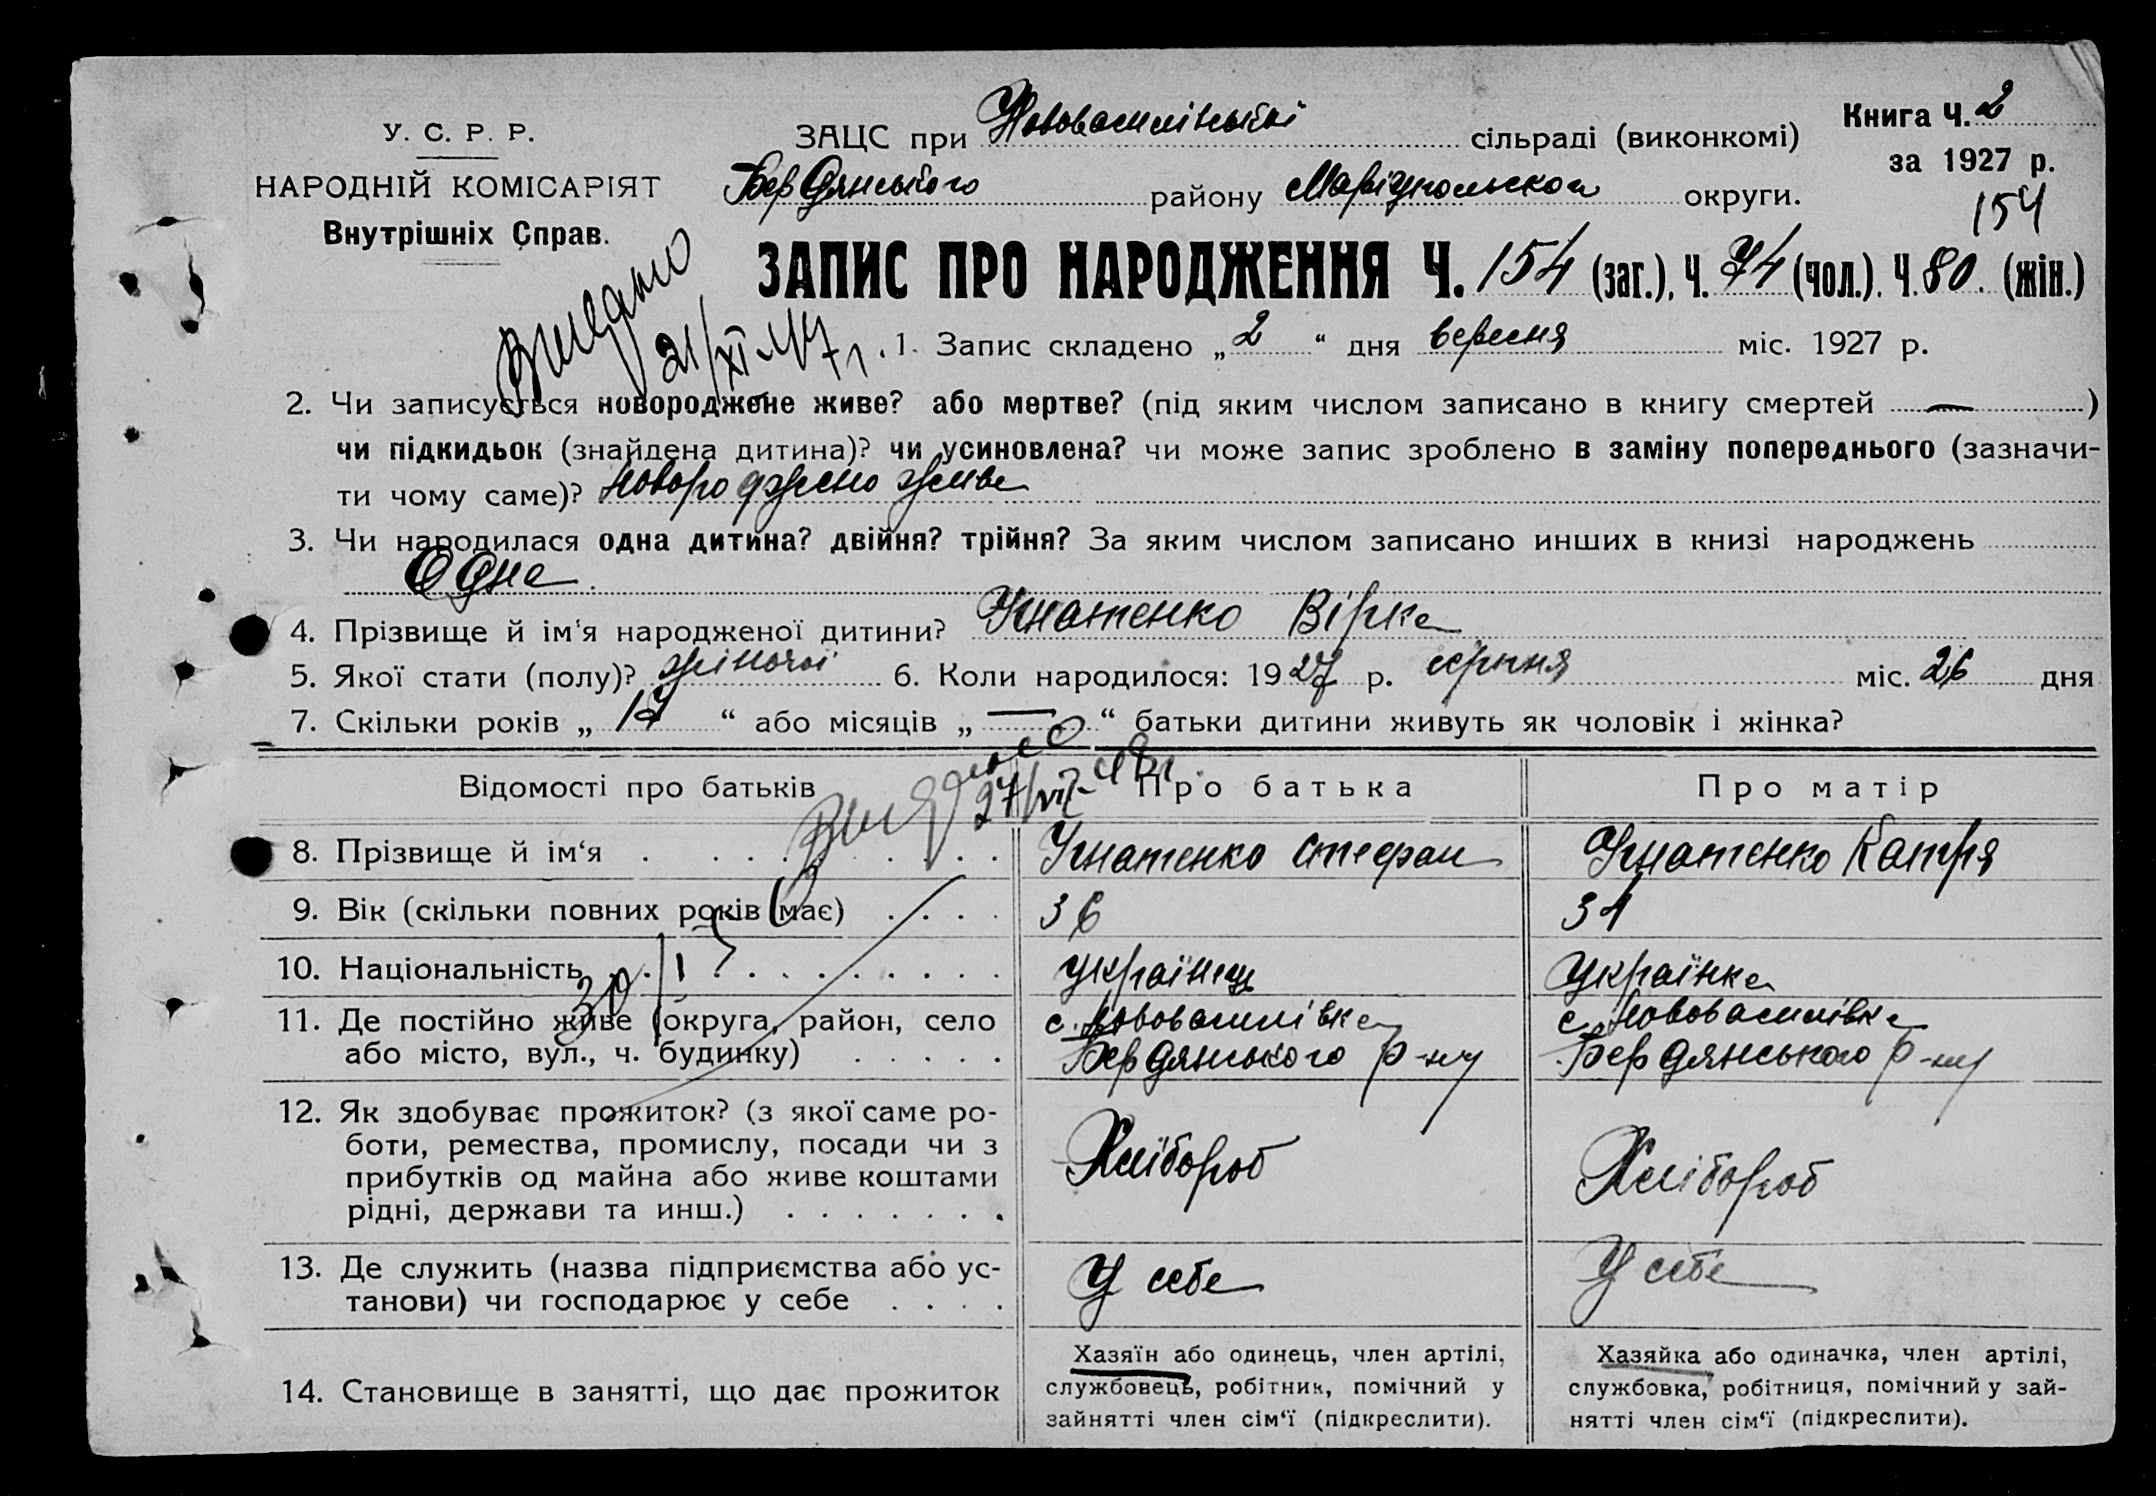 У. С. Р. Р.
НАРОДНІЙ КОМІСАРІЯТ
Внутрішніх Справ.
ЗАЦС при Нововасилівській сільраді (виконкомі)
Бердянського району Маріупольскої округи.
Книга Ч. 2
за 1927 р.
154
ЗАПИС ПРО НАРОДЖЕННЯ Ч. 154 (заг.), Ч. 74 (чол.). Ч. 80. (жін.)
Видано
21/XI
1. Запис складено „ 2 “ дня вересня міс. 1927 р.
2. Чи записується новороджене живе? або мертве? (під яким числом записано в книгу смертей — )
чи підкидьок (знайдена дитина)? чи усиновлена? чи може запис зроблено в заміну попереднього (зазначи-
ти чому саме)? новороджено живе
3. Чи народилася одна дитина? двійня? трійня? За яким числом записано инших в книзі народжень
Одна
4. Прізвище й ім'я народженої дитини? Гнатенко Вірка
5. Якої стати (полу)? жіночої 6. Коли народилося: 1927 р. серпня міс. 26 дня
7. Скільки років „ 17 “ або місяців „ — “ батьки дитини живуть як чоловік і жінка?
27/VII-48г.
Відомості про батьків Про батька Про матір
8. Прізвище й ім‘я . . . . . Гнатенко Стефан Гнатенко Катря
9. Вік (скільки повних років має) . . . . 36 34
10. Національність . . . . . українець Українка
30/I
11. Де постійно живе (округа, район, село с. Нововасилівка с. Нововасилівка
або місто, вул., ч. будинку) . . . . . Бердянського р-ну Бердянського р-ну
12. Як здобуває прожиток? (з якої саме ро-
боти, ремества, промислу, посади чи з Хлібороб Хлібороб
прибутків од майна або живе коштами
рідні, держави та инш.) . . . . . . .
13. Де служить (назва підприємства або ус- У себе У себе
танови) чи господарює у себе . . . .
14. Становище в занятті, що дає прожиток
Хазяїн або одинець, член артілі,
службовець, робітник, помічний у
зайнятті член сім‘ї (підкреслити).
Хазяйка або одиначка, член артілі,
службовка, робітниця, помічний у зай-
нятті член сім‘ї (підкреслити).